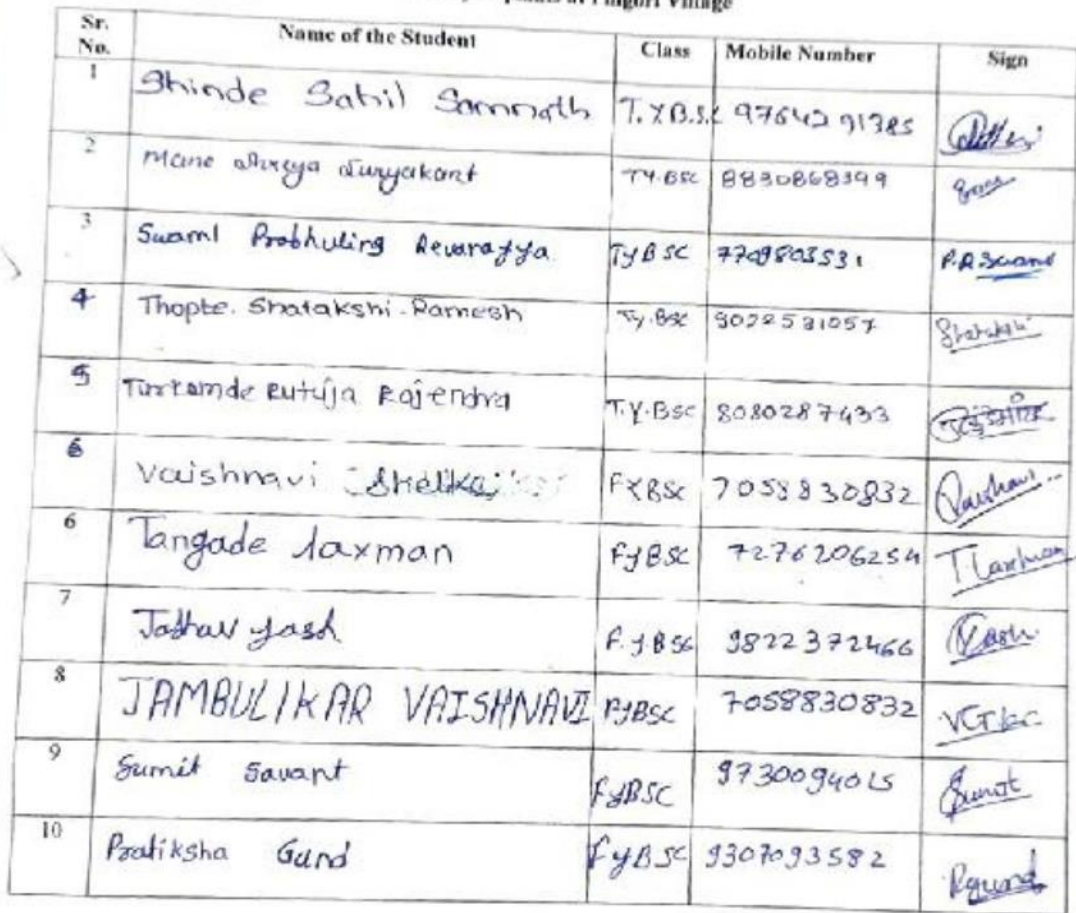 at Pingori Village
Sr. No. Name of the Student Class Mobile Number Sign
1 Shinde Sahil Somnath T.Y.B.Sc 9764291385
2 Mane Shreya Suryakant TY.BSC 8830868399
3 Swami Prabhuling Revarayya TyBSC 7709803531 P.R.Swami
4 Thopte. Shatakshi. Ramesh Ty.BSC 9022581057 Shatakshi
5 Rutuja Rajendra T.Y.BSC 8080287433
6 Vaishnavi Shelke FYBSC 7058830832 Vaishnavi
6 Tangade Laxman FyBSC 7276206254 T.Laxman
7 Jadhav Yash F.yBSC 9822372466 Yash
8 JAMBULIKAR VAISHNAVI FyBSC 7058830832
9 Sumit Savant FyBSC 9730094015 Sumit
10 Pratiksha Gund FyBSC 9307093582 Pgund